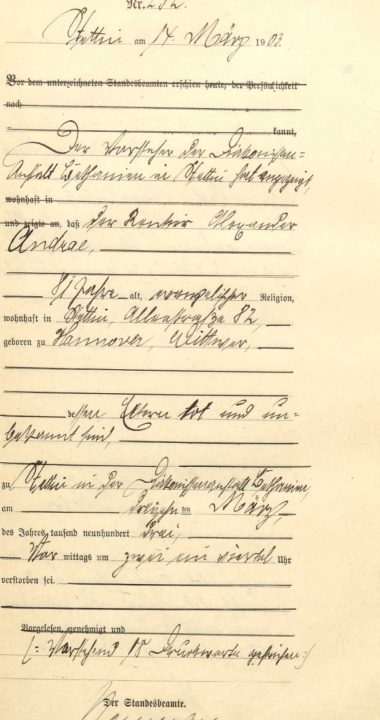 Nr. 252.
Stettin am 14. März 1903.
Vor dem unterzeichneten Standesbeamten erschien heute, der Persönlichkeit
nach
kannt,
Der Vorsteher der Diakonissen=
Anstalt Bethanien in Stettin hat angezeigt,
wohnhaft in
und zeigte an, daß der Rentier Alexander
Andrae,
81 Jahre alt, evangelischer Religion,
wohnhaft in Stettin, 82,
geboren zu Hannover, Wittwer,
dessen Eltern tot und un=
bekannt sind,
zu Stettin in der Diakonissenanstalt Bethanien,
am ten März
des Jahres tausend neunhundert drei,
Vor mittags um zwei ein viertel Uhr
verstorben sei.
Vorgelesen, genehmigt und
(: Vorstehend 15 Druckworte gestrichen :)
Der Standesbeamte.